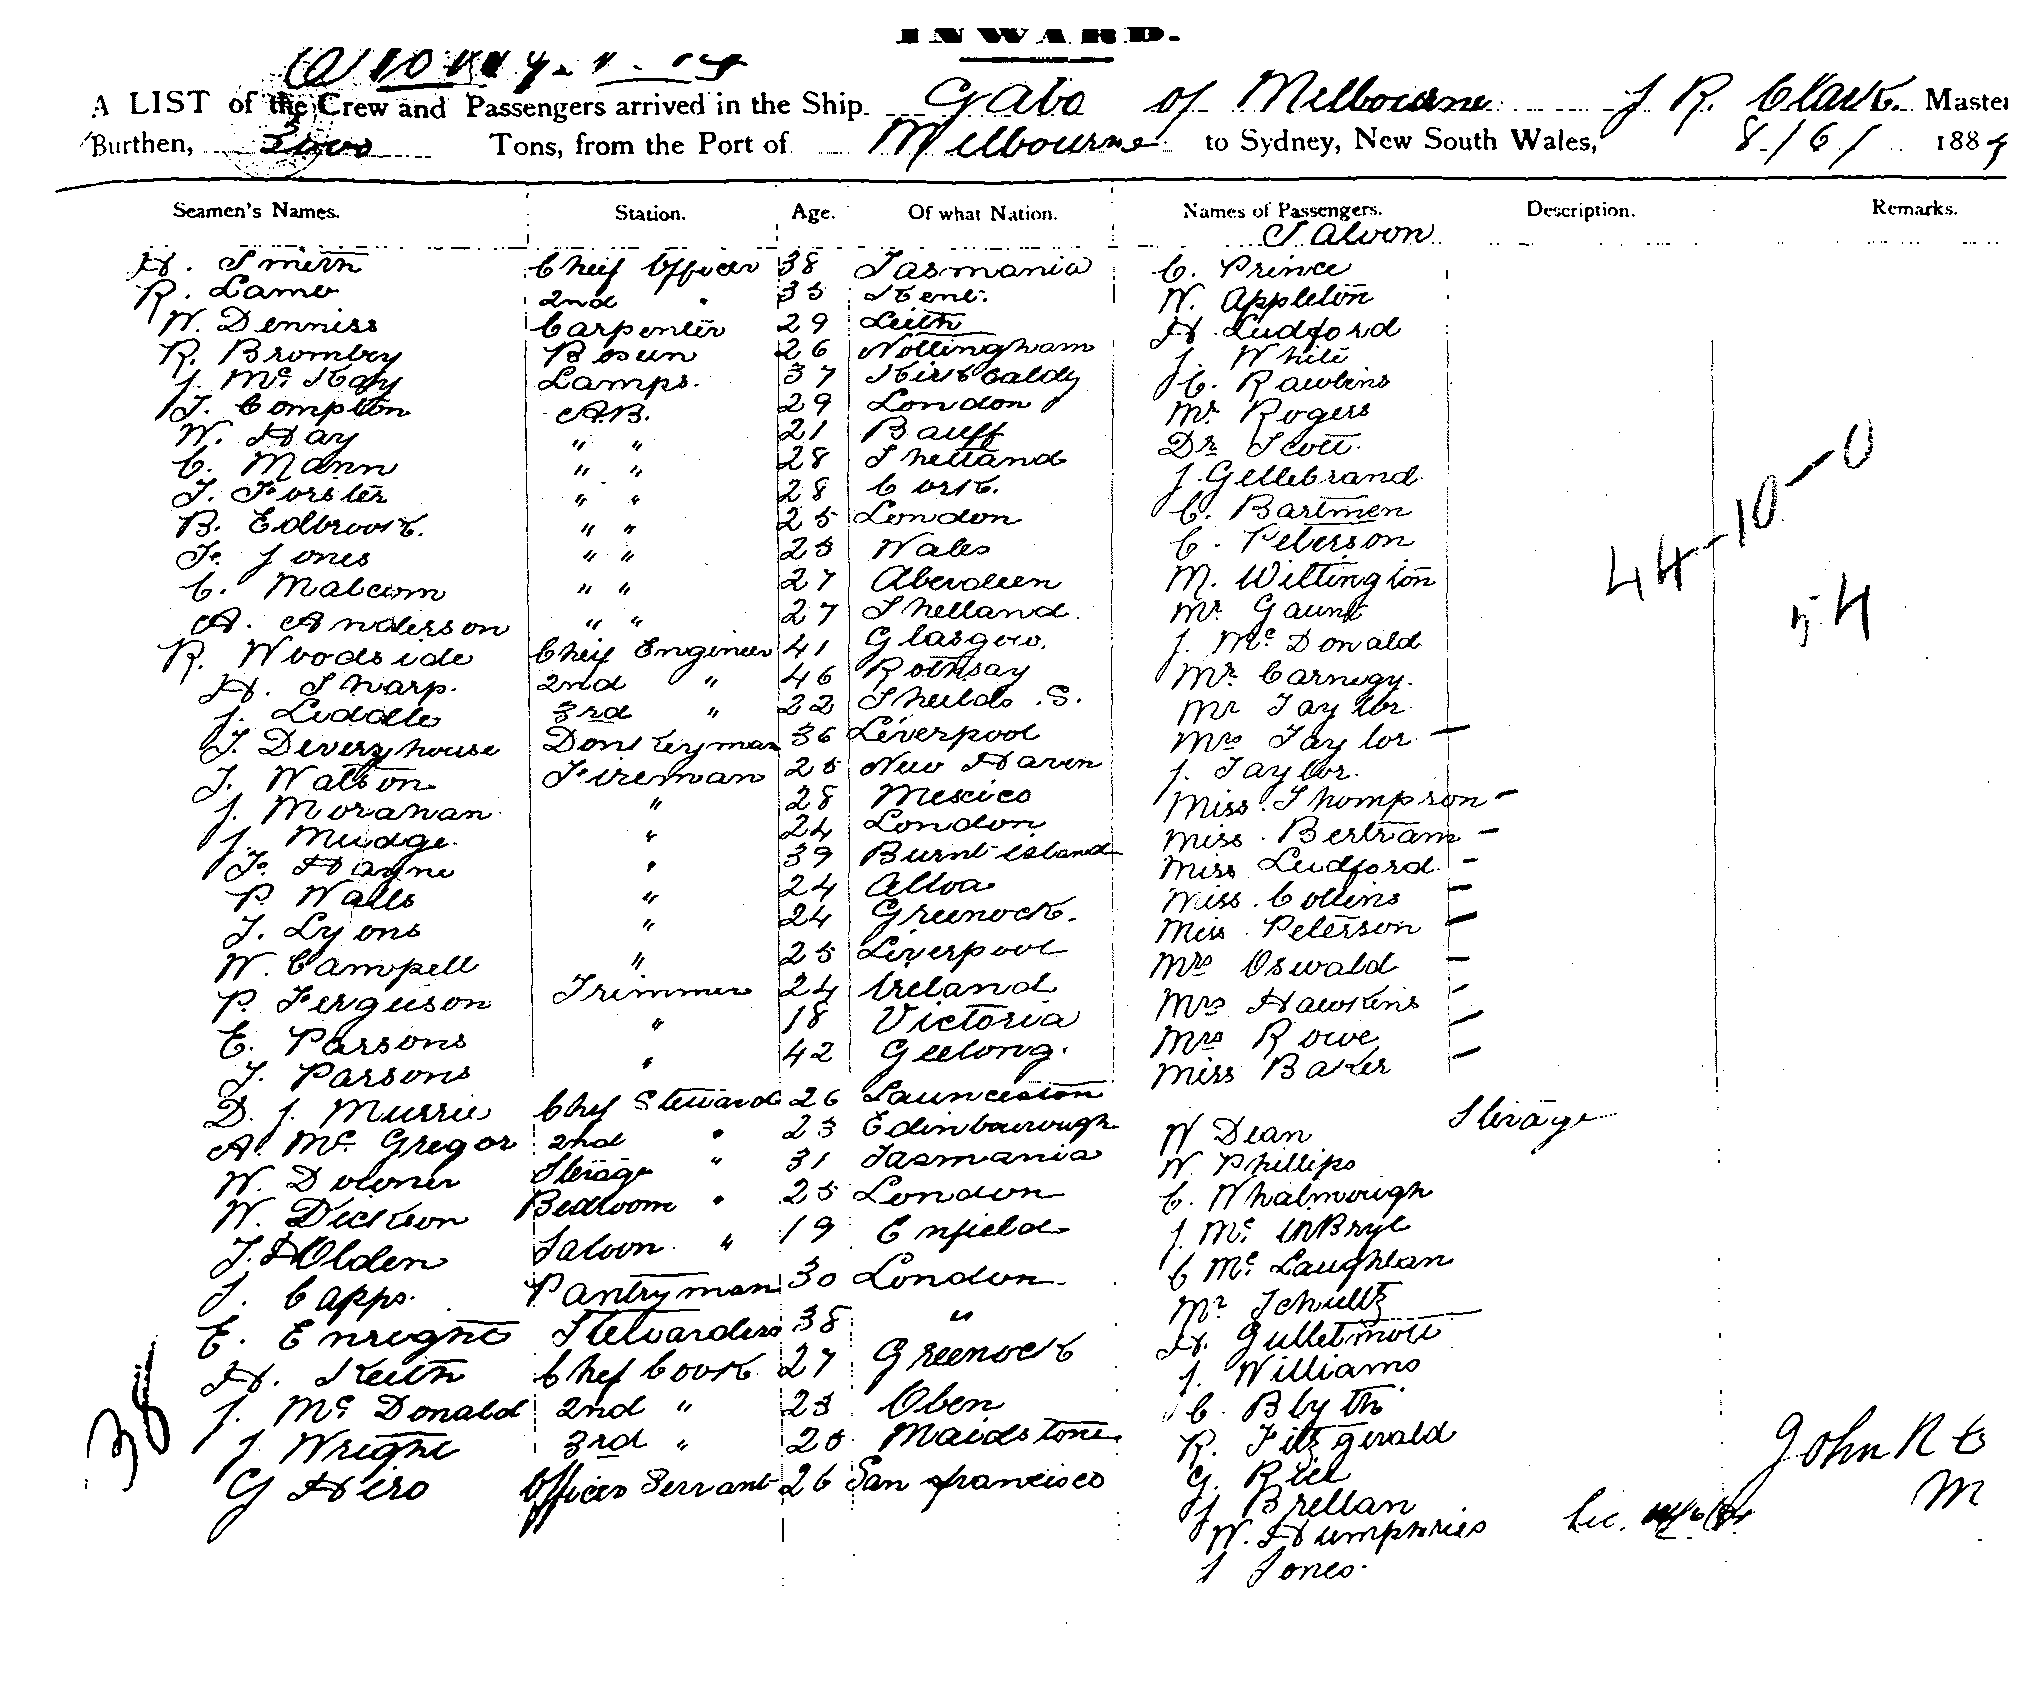 INWARD.
A LIST of the Crew and Passengers arrived in the Ship Gabo of Melbourne J R. Clark Master
Burthen, Tons, from the Port of Melbourne to Sydney, New South Wales, 8/6/ 1884
Seamen's Names. Station. Age. Of what Nation. Names of Passengers. Description. Remarks.
Saloon
H. Smith Chief Officer 38 Tasmania C. Prince
R. Lamb 2nd " 35 Kent. W. Appleton
W. Denniss Carpenter 29 Leith H. Ludford
R. Bromby Bosun 26 Nottingham J. White
J. Mc Kay Lamps. 37 Kirkcaldy C. Rawlins
T. Compton A.B. 29 London Mr Rogers
W. Hay " " 21 Banff Dr Scott.
C. Mann " " 28 Shetland J. Gellebrand
T. Forster " " 28 Cork. C. Bartmen
B. Edbrook. " " 25 London C. Peterson
F. Jones " " 25 Wales M. Wittington
C. Malcom " " 27 Aberdeen Mr Gaunt
A. Anderson " " 27 Shetland. J. Mc Donald
R. Woodside Chief Engineer 41 Glasgow. Mr Carnegy.
H. Sharp. 2nd " 46 Rothsay Mr Taylor
J. Liddle 3rd " 22 Sheilds .S. Mrs Taylor -
T. Deveryhouse Donkeyman 36 Liverpool J. Taylor.
T. Watson Fireman 25 New Haven Miss Thompson -
J. Moranan " 28 Mexico Miss Bertram -
J. Mudge. " 24 London Miss Ludford -
F. Hayne " 39 Burnt island Miss Collins -
P. Walls " 24 Alloa Miss Peterson -
T. Lyons " 24 Greenock. Mrs Oswald -
W. Campell " 25 Liverpool Mrs Hawkins -
P. Ferguson Trimmer 24 Ireland Mrs Rowe -
E. Parsons " 18 Victoria Miss Baker -
T. Parsons " 42 Geelong.
44-10-0
54
D. J. Murrie Chef Steward 26 Launceston
Sterage
A. Mc Gregor 2nd " 23 Edinbourough W Dean
W. Sterage " 31 Tasmania W. Phillips
W. Dickson Bedroom " 25 London C. Whalmough
T. Holden Saloon " 19 Enfield J. Mc
J. Capps. Pantryman 30 London. C Mc Laughlan
E. Enright Stewardess 38 " Mr Schultz
H. Keith Chef Cook 27 Greenock H. Gulletmott
J. Mc Donald 2nd " 23 Oben J. Williams
J Wright 3rd " 20 Maidstone C. Blyth
G Hero Officers Servant 26 San francisco R. Fitzgerald
38
G. Rice
J Brellan
W. Humphries
J Jones.
John R
M